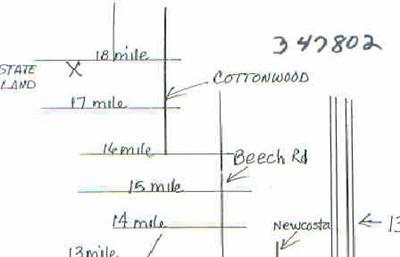 347802
18 mile
STATE
LAND
X
COTTONWOOD
17 mile
16 mile
Beech Rd
15 mile
14 mile
Newcosta
13
13 mile